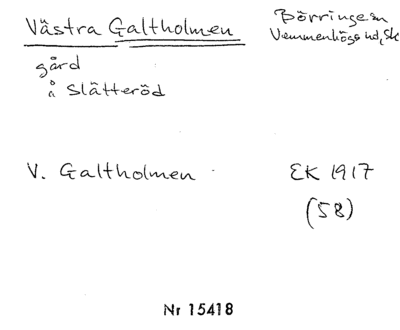 Västra Galtholmen
Börringe sn
Vemmenhögs hd, Sk
gård
å Slätteröd
V. Galtholmen
EK 1917
(58)
Nr 15418